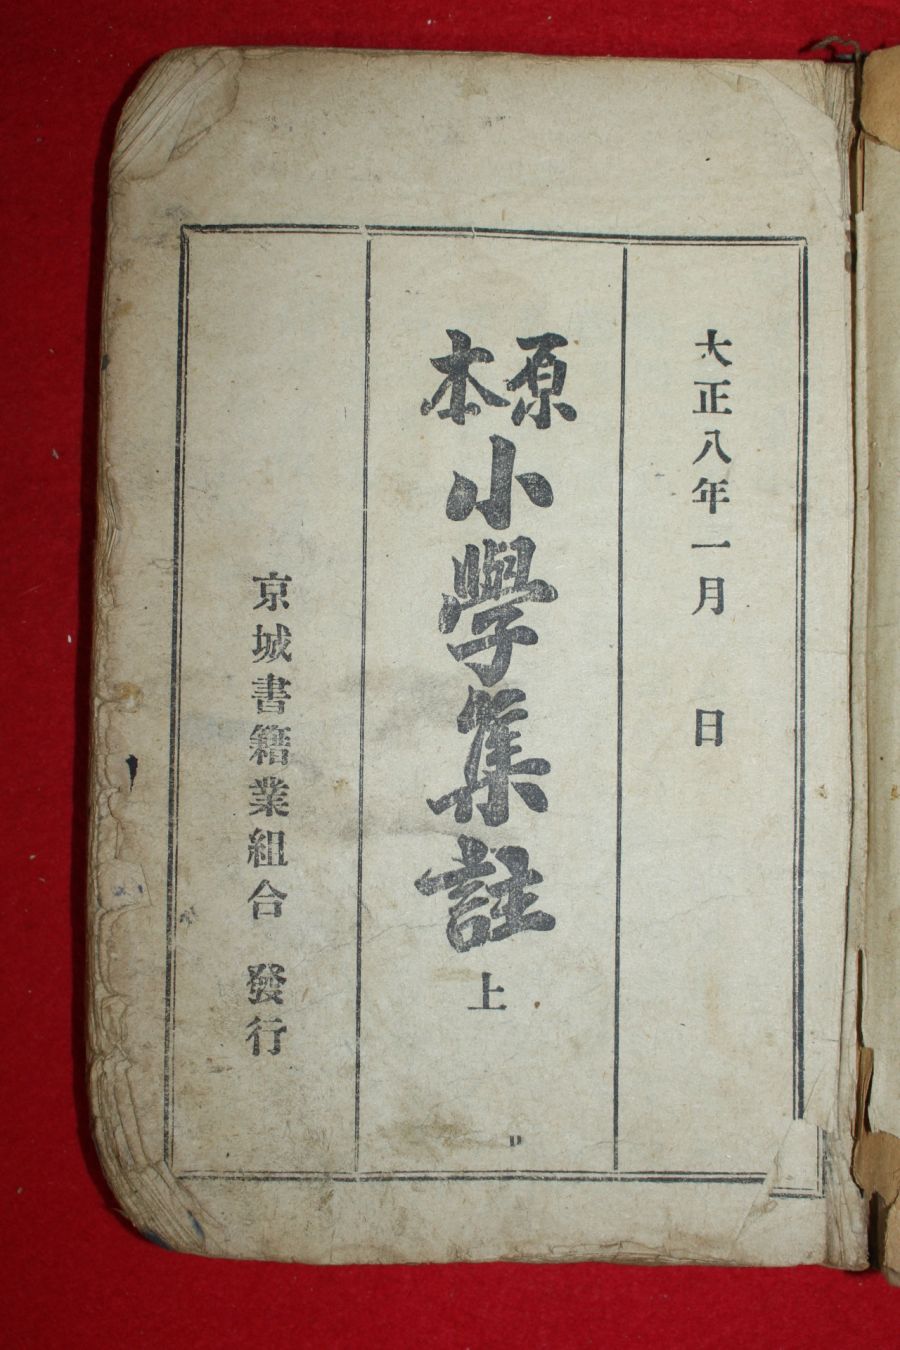 大正八年一月　日
原本小學集註上
京城書籍業組合　發行